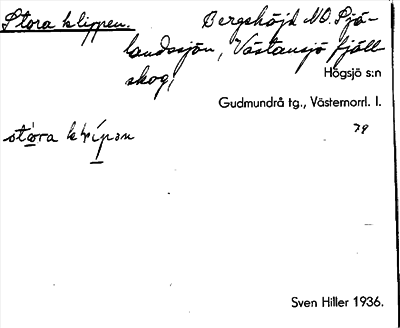 Stora klippen. Bergshöjd NO. Sjö-
landssjön, Västansjö fjäll
skog,
Högsjö s:n
Gudmundrå tg., Västernorrl. l.
79
stora klipən
Sven Hiller 1936.